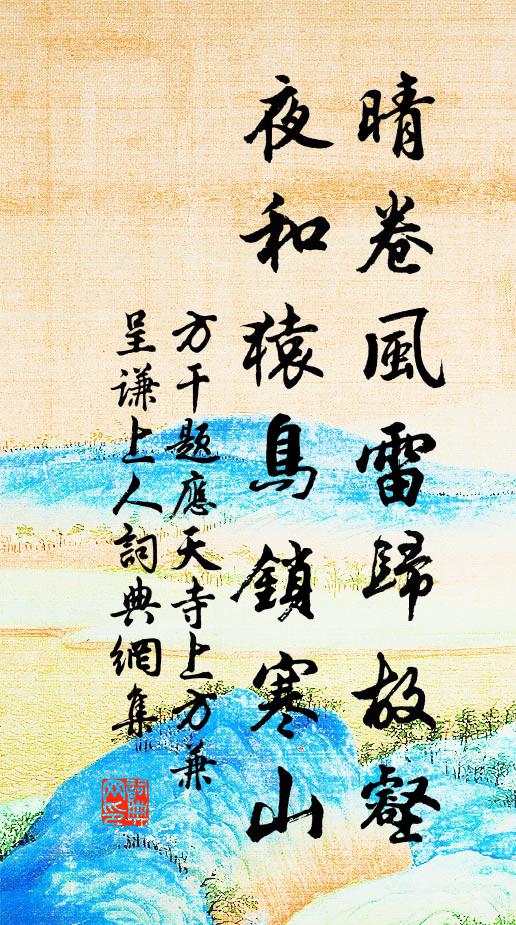 晴卷風雷歸故壑
夜和猿鳥鎖寒山
方干題應天寺上方兼
呈謙上人詞典網集